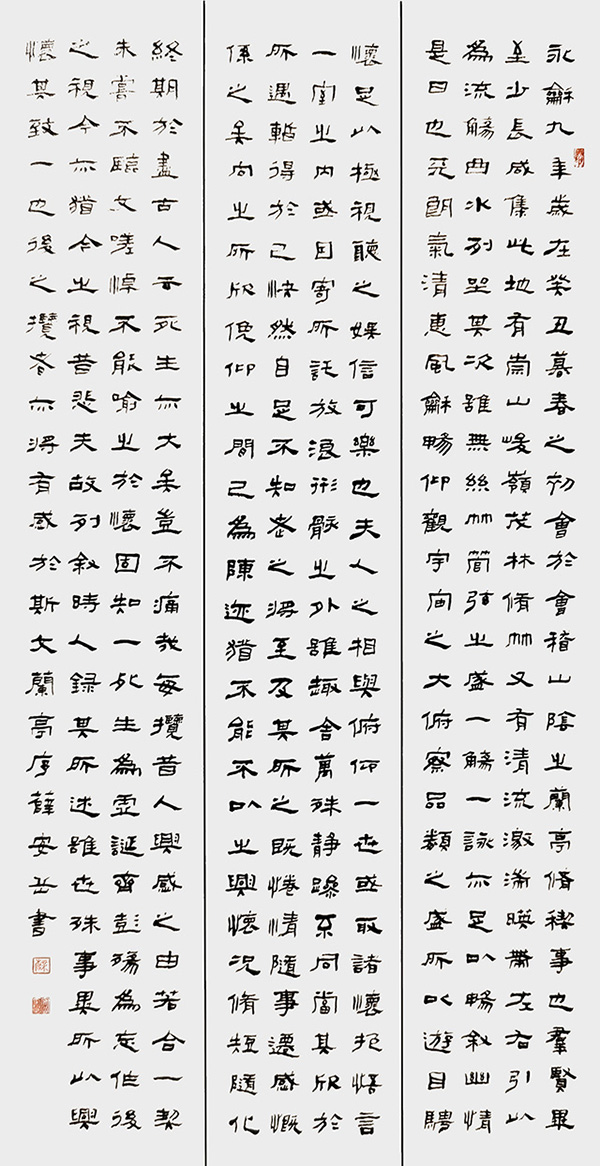 永龢九年歲在癸丑暮春之初會於會稽山陰之蘭亭脩禊事也羣賢畢
至少長咸集此地有崇山峻嶺茂林脩竹又有清流激湍暎帶左右引以
為流觴曲水列坐其次雖無絲竹管弦之盛一觴一詠亦足以暢敘幽情
是日也天朗氣清惠風龢暢仰觀宇宙之大俯察品類之盛所以遊目騁
懷足以極視聽之娛信可樂也夫人之相與俯仰一世或取諸懷抱悟言
一室之內或因寄所託放浪形骸之外雖趣舍萬殊靜躁不同當其欣於
所遇暫得於己快然自足不知老之將至及其所之既惓情隨事遷感慨
係之矣向之所欣俛仰之間已為陳迹猶不能不以之興懷況脩短隨化
終期於盡古人云死生亦大矣豈不痛哉每攬昔人興感之由若合一契
未嘗不臨文嗟悼不能喻之於懷固知一死生為虛誕齊彭殤為妄作後
之視今亦猶今之視昔悲夫故列敘時人錄其所述雖世殊事異所以興
懷其致一也後之攬者亦將有感於斯文蘭亭序薛安書